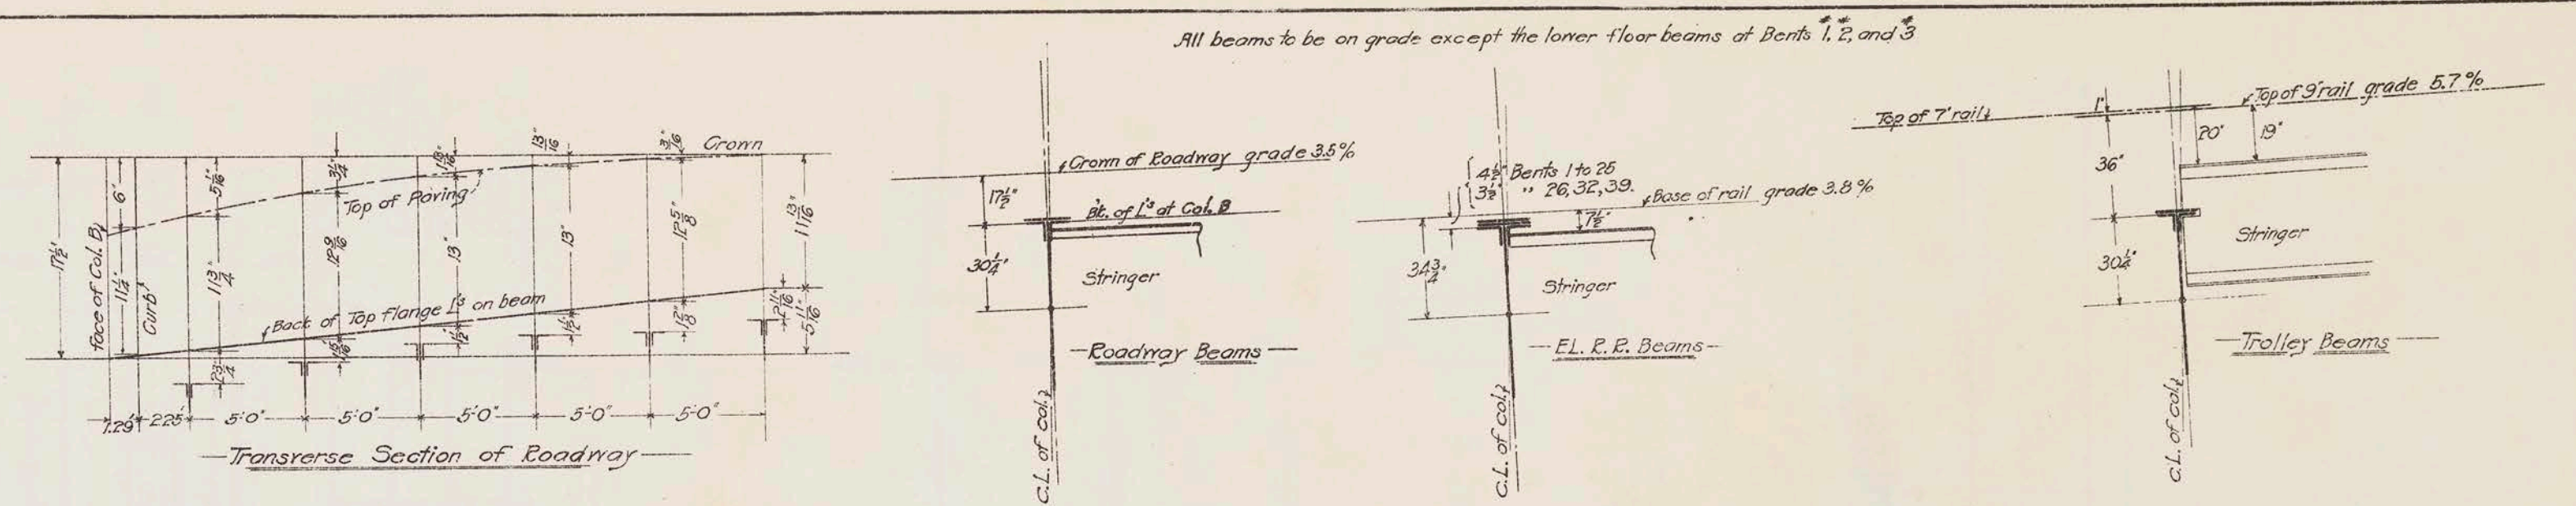 All beams to be on grade except the lower floor beams at Bents #1, #2, and #3
17½"
Face of Col. B
6"
11¼"
Curb
5 1/16"
11¾"
2¾"
3¼"
12 9/16"
1 13/16"
13"
1½"
13/16"
13"
1½"
3/16"
12 5/8"
Crown
11 13/16"
2 11/16"
5 11/16"
Top of Paving
Back of Top flange L's on beam
1.29' 2.25' 5'-0" 5'-0" 5'-0" 5'-0" 5'-0"
Transverse Section of Roadway
Crown of Roadway grade 3.5%
17½"
Bk. of L's at Col. B
30¼"
Stringer
Roadway Beams
C.L. of col.
4½" Bents 1 to 25
3½" " 26, 32, 39.
Base of rail grade 3.8%
7½"
34¾"
Stringer
EL. R.R. Beams
C.L. of col.
Top of 7" rail
1"
Top of 9" rail grade 5.7%
20"
19"
36"
Stringer
30¼"
Trolley Beams
C.L. of col.